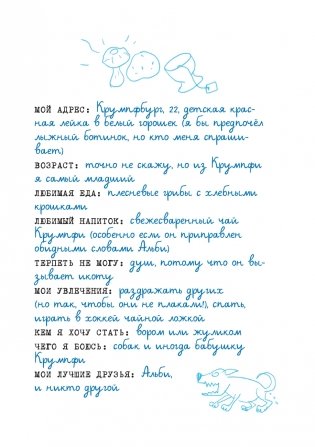 МОЙ АДРЕС: Крумпфбург, 22, детская крас-
ная лейка в белый горошек (я бы предпочёл
лыжный ботинок, но кто меня спраши-
вает)
ВОЗРАСТ: точно не скажу, но из Крумпфи
я самый младший
ЛЮБИМАЯ ЕДА: плесневые грибы с хлебными
крошками
ЛЮБИМЫЙ НАПИТОК: свежесваренный чай
Крумпфи (особенно если он приправлен
обидными словами Альби)
ТЕРПЕТЬ НЕ МОГУ: душ, потому что он вы-
зывает икоту
МОИ УВЛЕЧЕНИЯ: раздражать других
(но так, чтобы они не плакали!), спать,
играть в хоккей чайной ложкой
КЕМ Я ХОЧУ СТАТЬ: вором или жуликом
ЧЕГО Я БОЮСЬ: собак и иногда бабушку
Крумпфи
МОИ ЛУЧШИЕ ДРУЗЬЯ: Альби,
и никто другой